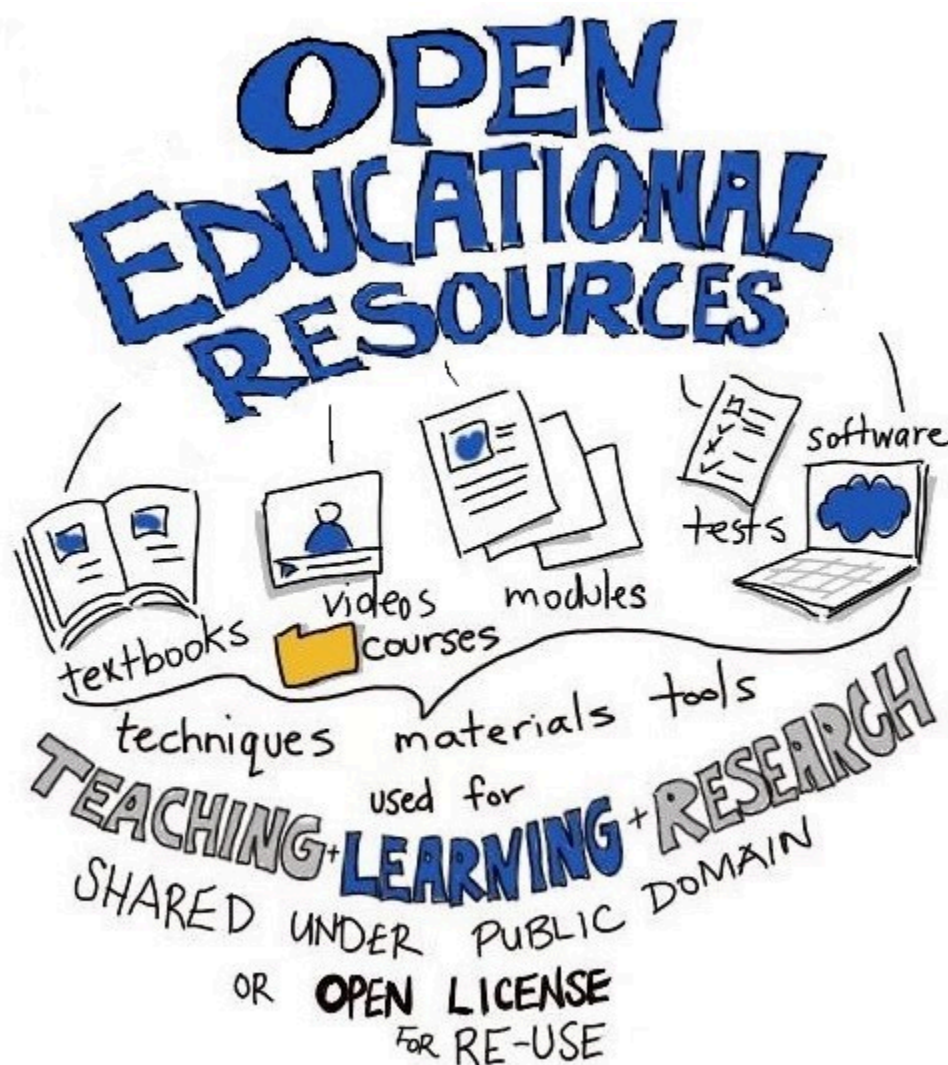 OPEN
EDUCATIONAL
RESOURCES
software
tests
modules
videos
textbooks
courses
techniques materials tools
used for
TEACHING + LEARNING + RESEARCH
SHARED UNDER PUBLIC DOMAIN
OR OPEN LICENSE
FOR RE-USE